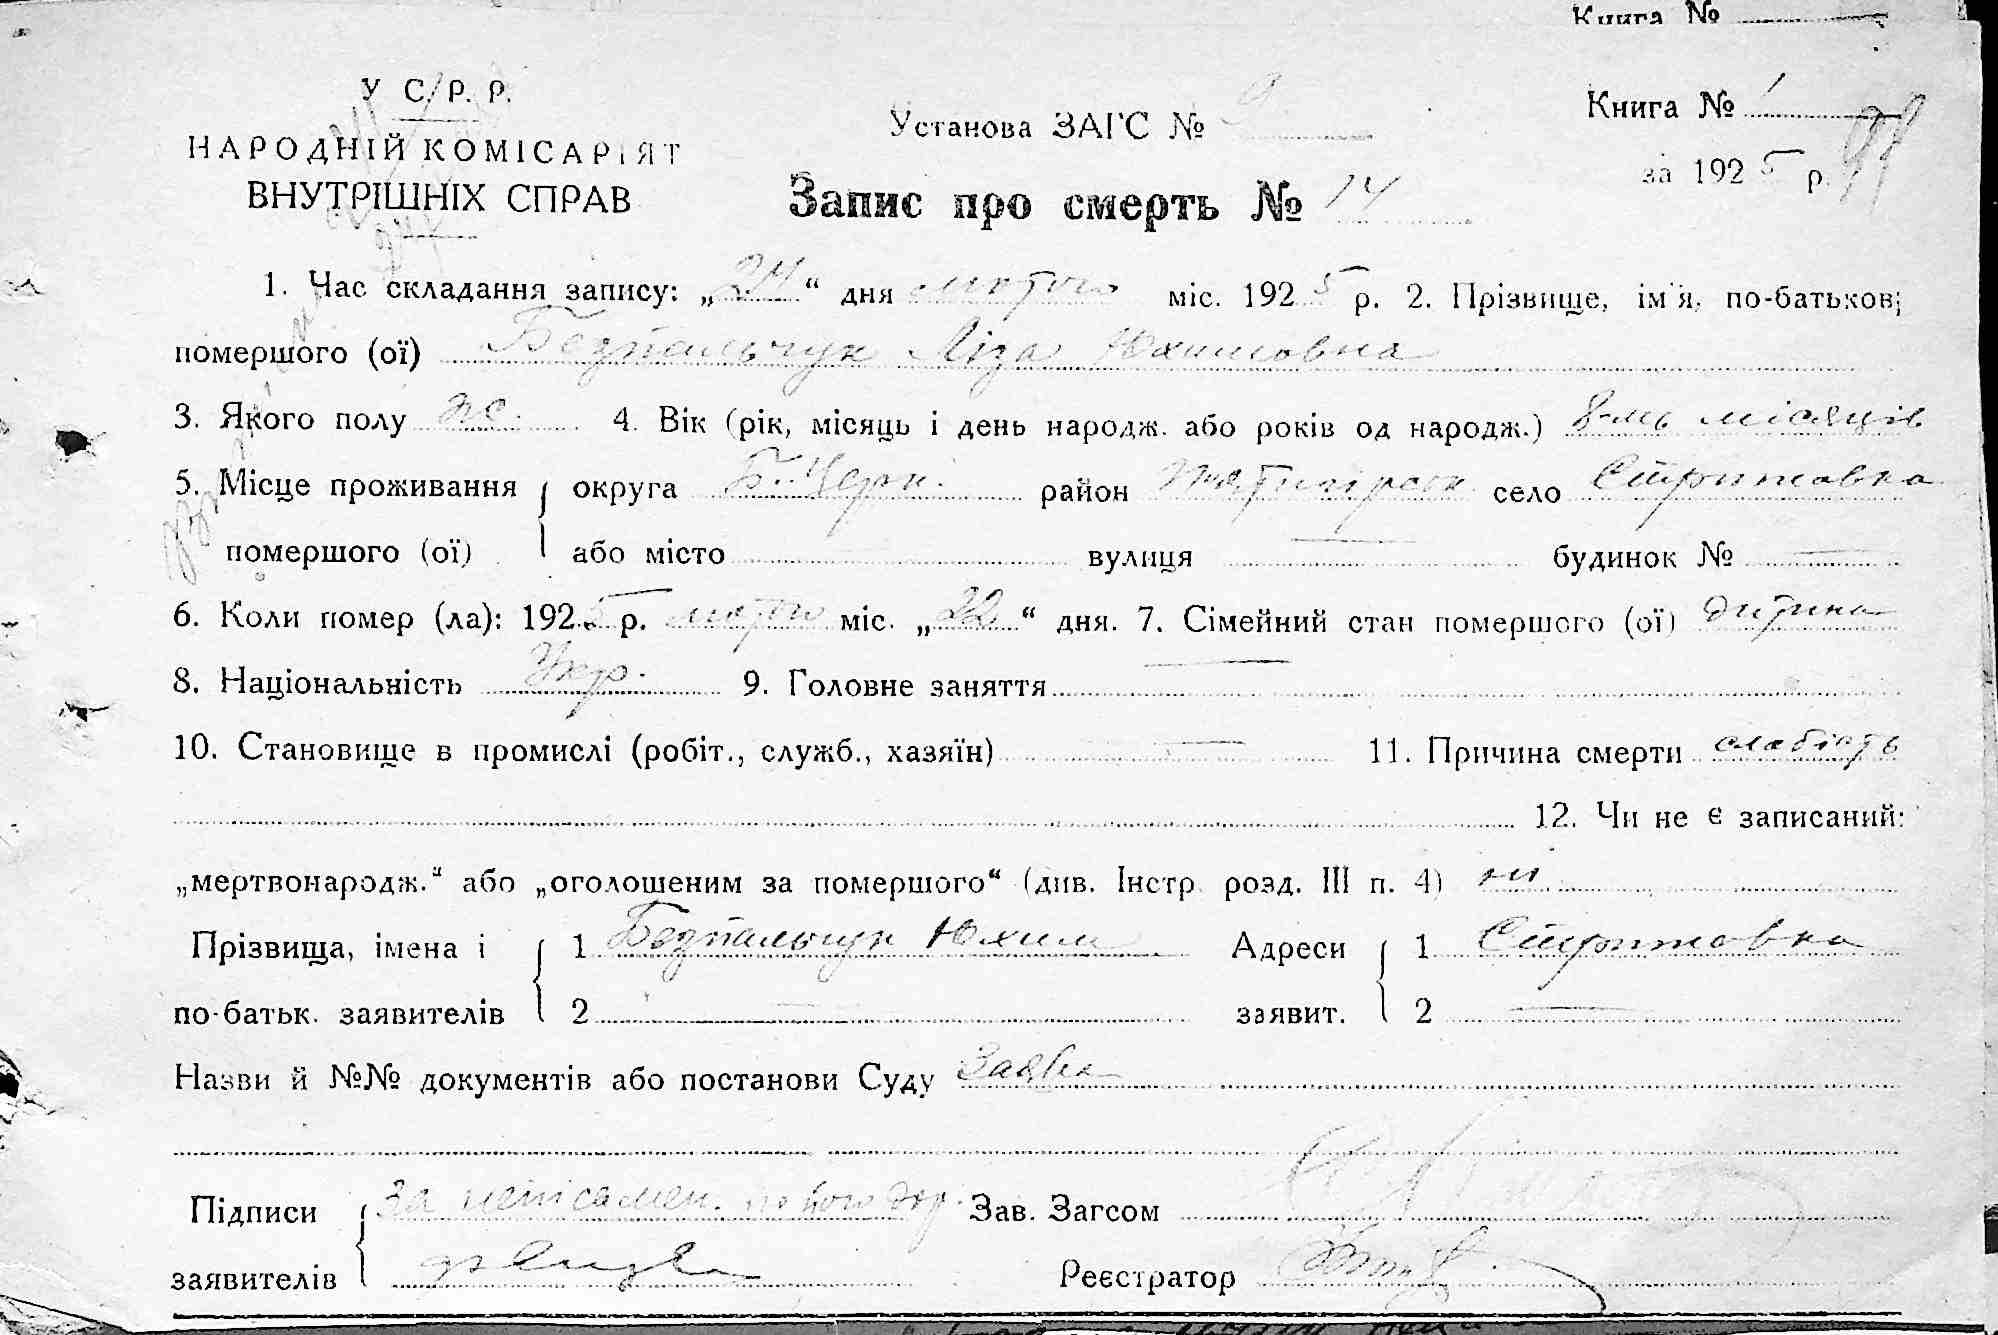 Книга №
У С. Р. Р.
НАРОДНІЙ КОМІСАРІЯТ
ВНУТРІШНІХ СПРАВ
Установа ЗАГС № 9
Запис про смерть № 14
Книга № 1
за 1925 р.
1. Час складання запису: „24“ дня лютого міс. 1925 р. 2. Прізвище, ім'я, по-батькові
помершого (ої) Безпальчук Ліза Юхимовна
3. Якого полу ж. 4. Вік (рік, місяць і день народж. або років од народж.) 8-мь місяців
5. Місце проживання округа Б. Церк. район село Стритовка
помершого (ої) або місто вулиця будинок №
6. Коли помер (ла): 1925 р. лютого міс. „22“ дня. 7. Сімейний стан помершого (ої) дитина
8. Національність Укр. 9. Головне заняття
10. Становище в промислі (робіт., служб., хазяїн) 11. Причина смерти слабість
12. Чи не є записаний:
„мертвонародж.“ або „оголошеним за помершого“ (див. Інстр. розд. III п. 4) ні
Прізвища, імена і 1 Безпальчук Юхим Адреси 1 Стритовка
по-батьк. заявителів 2 заявит. 2
Назви й №№ документів або постанови Суду Заява
Підписи За неписьмен. Зав. Загсом
заявителів Реєстратор